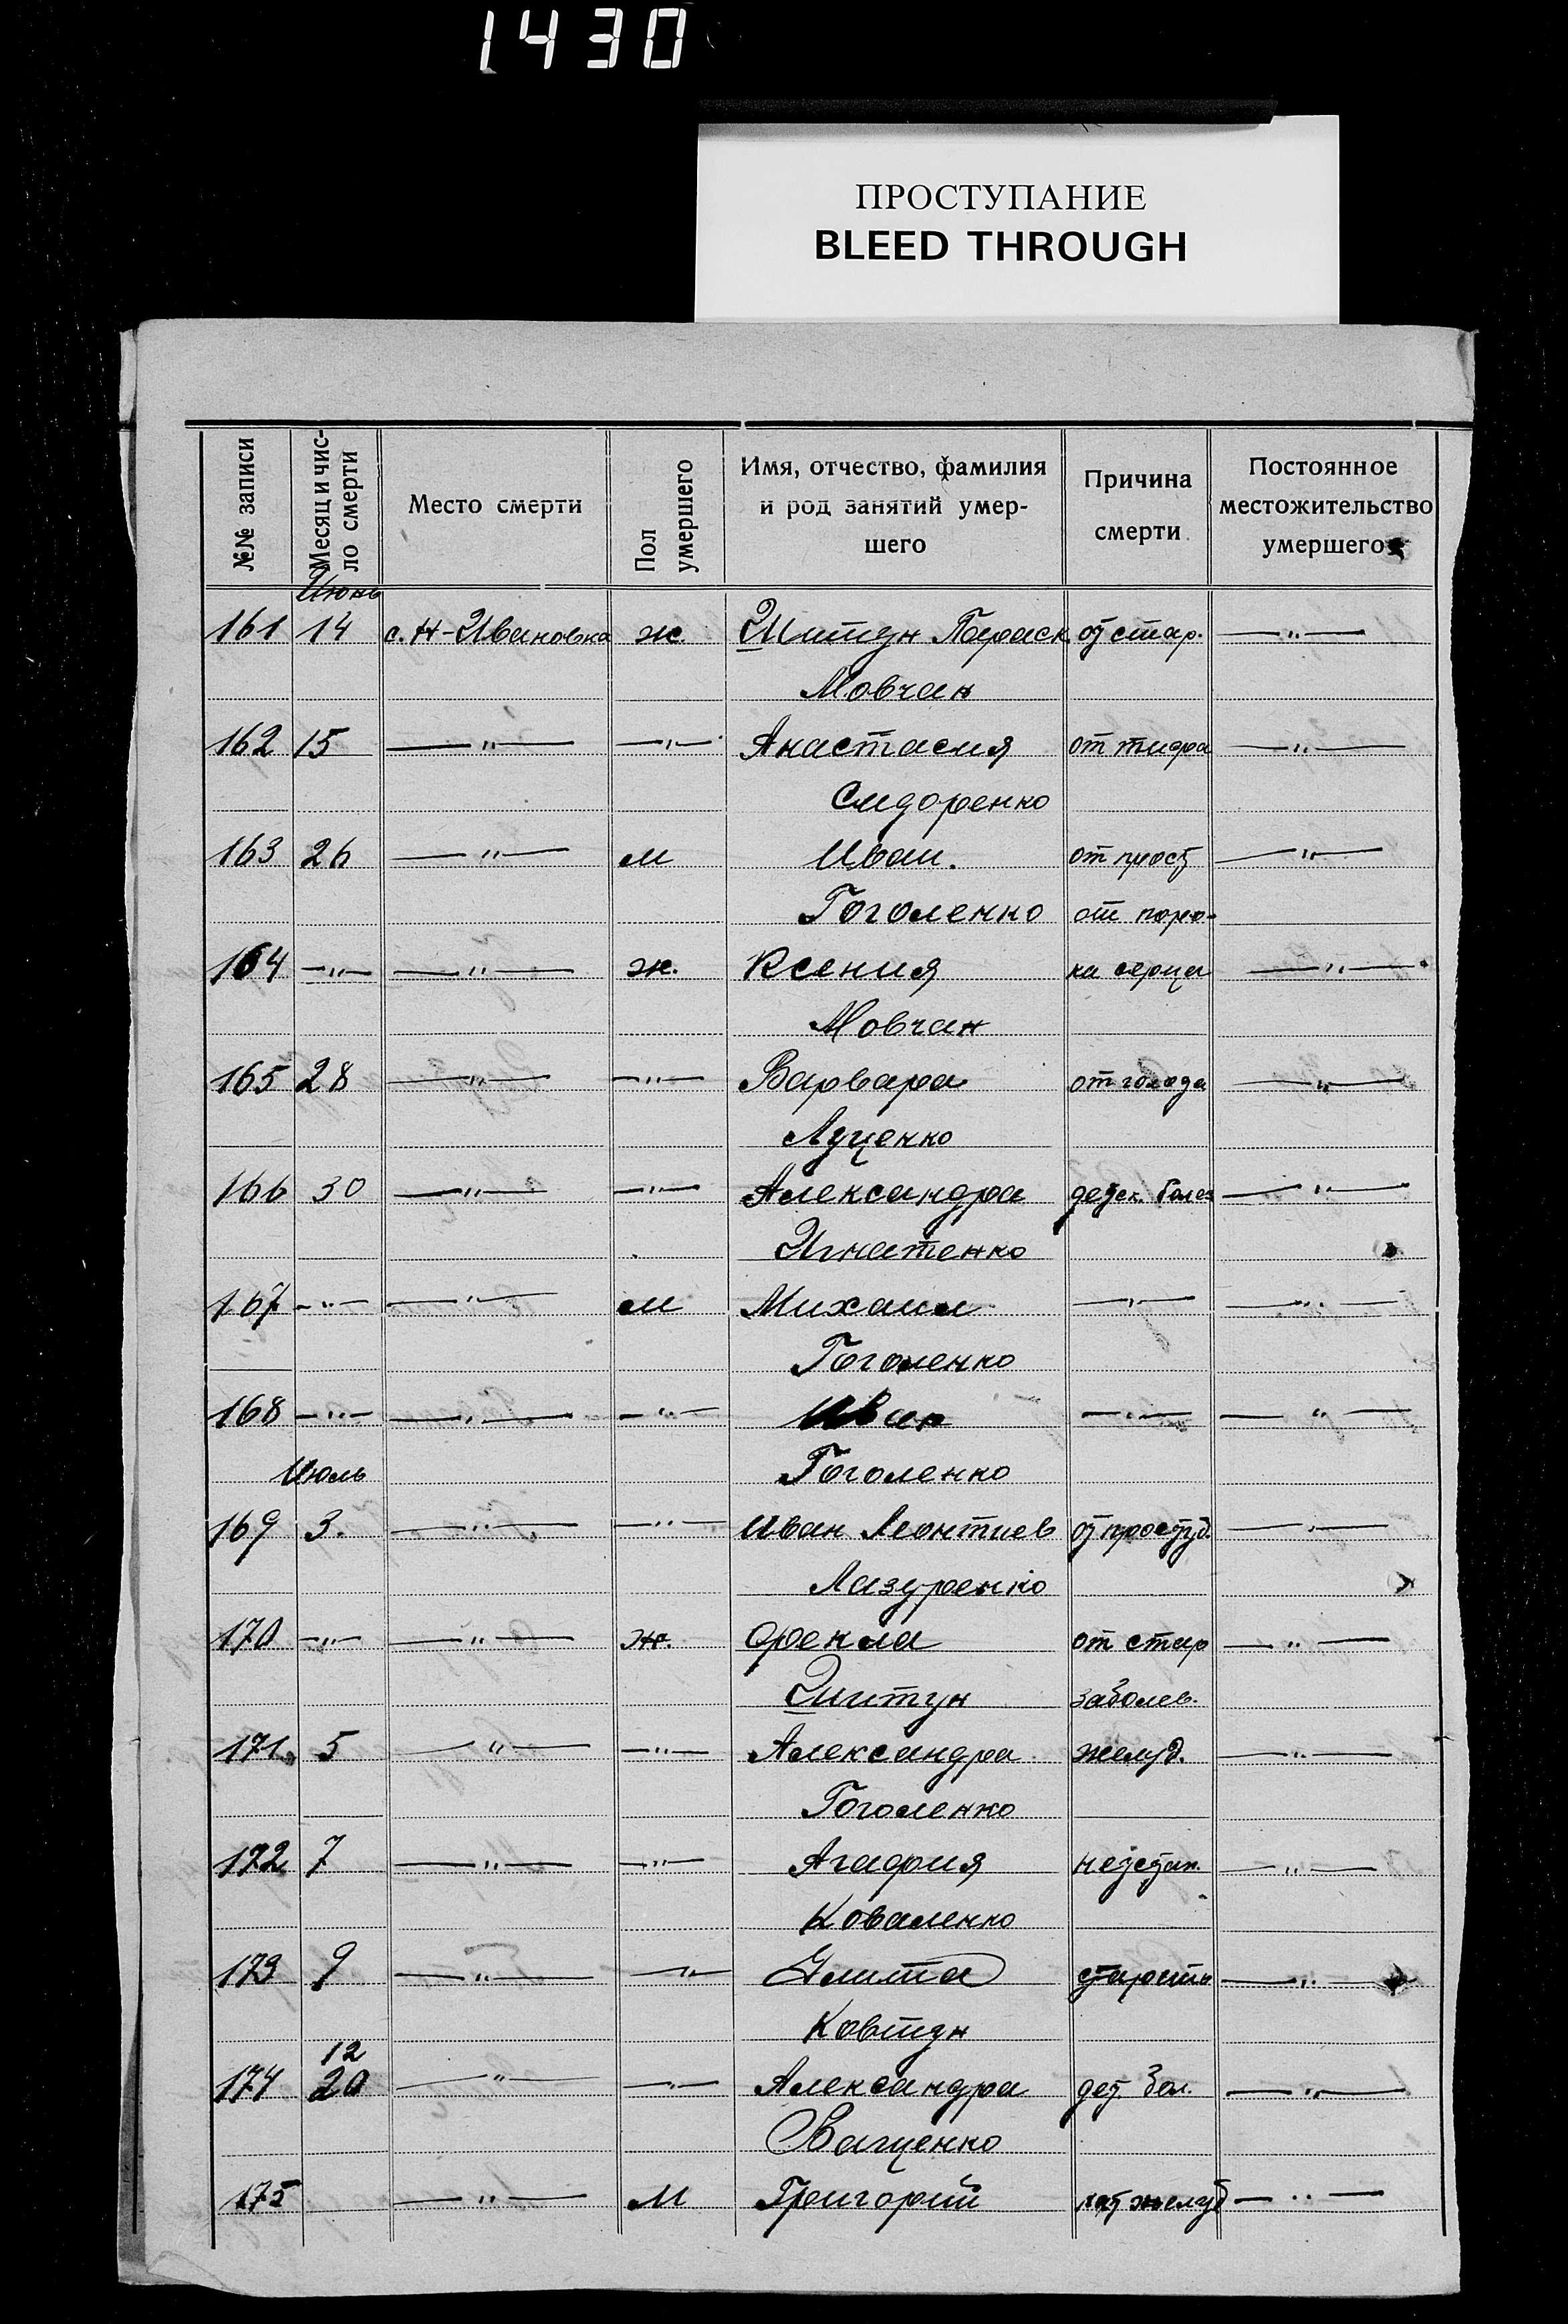 1430
ПРОСТУПАНИЕ
BLEED THROUGH
№№ записи
Месяц и чис-
ло смерти
Место смерти
Пол
умершего
Имя, отчество, фамилия
и род занятий умер-
шего
Причина
смерти
Постоянное
местожительство
умершего
Июнь
161 14 с. Н-Ивановка ж. Шитун Параск. от стар. —"—
Мовчан
162 15 —"— —"— Анастасия от тифа —"—
Сидоренко
163 26 —"— м Иван. от прост —"—
Гоголенко от поро-
164 —"— —"— ж. Ксения ка серца —"—
Мовчан
165 28 —"— —"— Варвара от голода —"—
Луценко
166 30 —"— —"— Александра детск. болез —"—
Игнатенко
167 —"— —"— м Михаил —"— —"—
Гоголенко
168 —"— —"— —"— Иван —"— —"—
Июль Гоголенко
169 3. —"— —"— Иван Леонтиев от простуд. —"—
Лазуренко
170 —"— —"— ж. Фекла от стар —"—
Шитун заболев.
171 5 —"— —"— Александра желуд. —"—
Гоголенко
172 7 —"— —"— Агафия неустан. —"—
Коваленко
173 9 —"— —"— Улита старости —"—
Ковтун
12
174 20 —"— —"— Александра дет. бол. —"—
Ващенко
175 —"— м Григорий кат желуд —"—